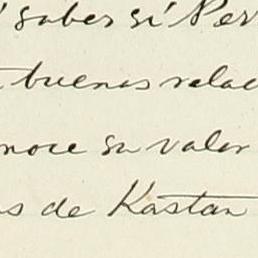 saber si Per
buenas relac
noce su valor
s de Kastan